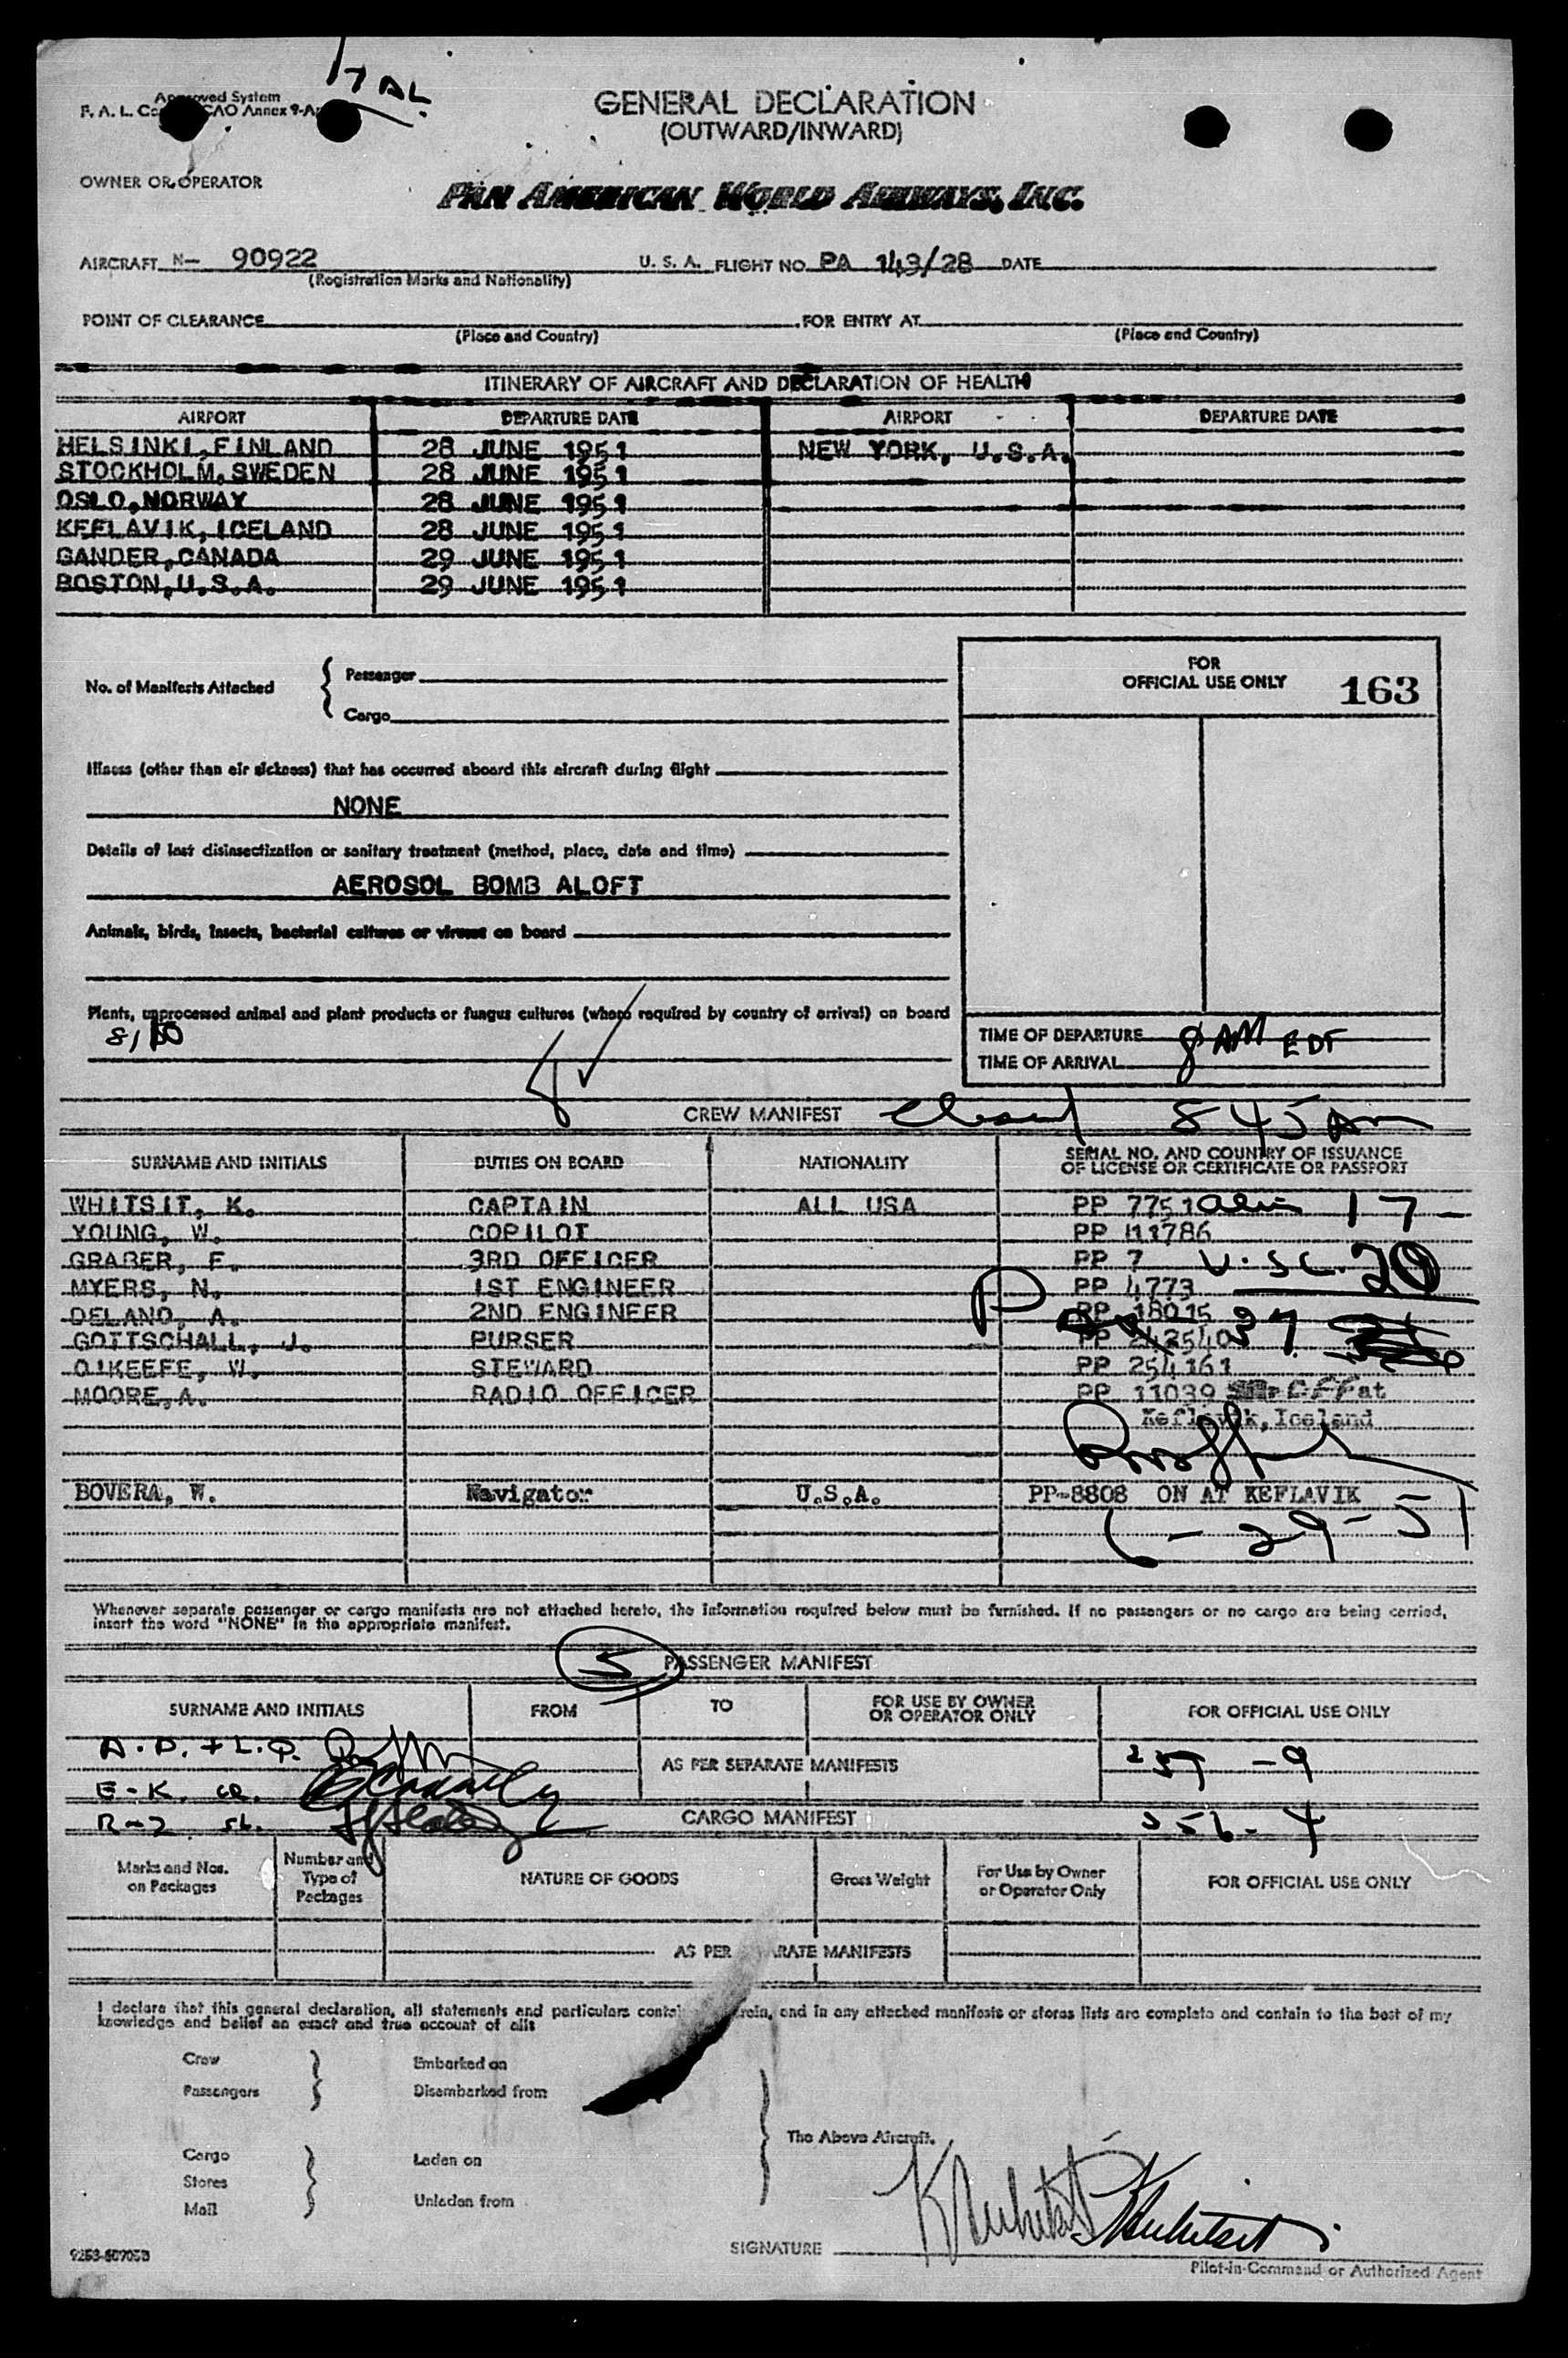 17 AL
Approved System
GENERAL DECLARATION
F. A. L. CAO Annex 9-A
(OUTWARD/INWARD)
OWNER OR OPERATOR
PAN AMERICAN WORLD AIRWAYS, INC.
AIRCRAFT N- 90922 U. S. A. FLIGHT NO. PA 143/28 DATE
(Registration Marks and Nationality)
POINT OF CLEARANCE FOR ENTRY AT
(Place and Country) (Place and Country)
ITINERARY OF AIRCRAFT AND DECLARATION OF HEALTH
AIRPORT DEPARTURE DATE AIRPORT DEPARTURE DATE
HELSINKI, FINLAND 28 JUNE 1951 NEW YORK, U.S.A.
STOCKHOLM, SWEDEN 28 JUNE 1951
OSLO, NORWAY 28 JUNE 1951
KEFLAVIK, ICELAND 28 JUNE 1951
GANDER, CANADA 29 JUNE 1951
BOSTON, U.S.A. 29 JUNE 1951
FOR
OFFICIAL USE ONLY 163
No. of Manifests Attached { Passenger
Cargo
Illness (other than air sickness) that has occurred aboard this aircraft during flight
NONE
Details of last disinsectization or sanitary treatment (method, place, date and time)
AEROSOL BOMB ALOFT
Animals, birds, insects, bacterial cultures or viruses on board
Plants, unprocessed animal and plant products or fungus cultures (where required by country of arrival) on board
TIME OF DEPARTURE 8 AM EDT
TIME OF ARRIVAL
CREW MANIFEST 845 Am
SURNAME AND INITIALS DUTIES ON BOARD NATIONALITY SERIAL NO. AND COUNTRY OF ISSUANCE
OF LICENSE OR CERTIFICATE OR PASSPORT
WHITSIT, K. CAPTAIN ALL USA PP 7751 alien 17
YOUNG, W. COPILOT PP 11786
GRABER, F. 3RD OFFICER PP 7 U.S.C. 20
MYERS, N. 1ST ENGINEER PP 4773
DELANO, A. 2ND ENGINEER PP 18015 37
GOTTSCHALL, J. PURSER PP 242540
O'KEEFE, W. STEWARD PP 254161
MOORE, A. RADIO OFFICER PP 11039 OFF at
Keflavik, Iceland
BOVERA, W. Navigator U.S.A. PP-8808 ON AT KEFLAVIK
6-29-51
Whenever separate passenger or cargo manifests are not attached hereto, the information required below must be furnished. If no passengers or no cargo are being carried,
insert the word "NONE" in the appropriate manifest.
5 PASSENGER MANIFEST
SURNAME AND INITIALS FROM TO FOR USE BY OWNER
OR OPERATOR ONLY FOR OFFICIAL USE ONLY
A.P. + L.P.
AS PER SEPARATE MANIFESTS 257 -9
E-K.
R-Z CARGO MANIFEST 256-4
Marks and Nos.
on Packages Number and
Type of
Packages NATURE OF GOODS Gross Weight For Use by Owner
or Operator Only FOR OFFICIAL USE ONLY
AS PER MANIFESTS
I declare that this general declaration, all statements and particulars and in any attached manifests or stores lists are complete and contain to the best of my
knowledge and belief an exact and true account of all:
Crew
Passengers Embarked on
Disembarked from
The Above Aircraft.
Cargo
Stores
Mail Laden on
Unladen from
SIGNATURE K Whitsit K Whitsit
Pilot-in-Command or Authorized Agent